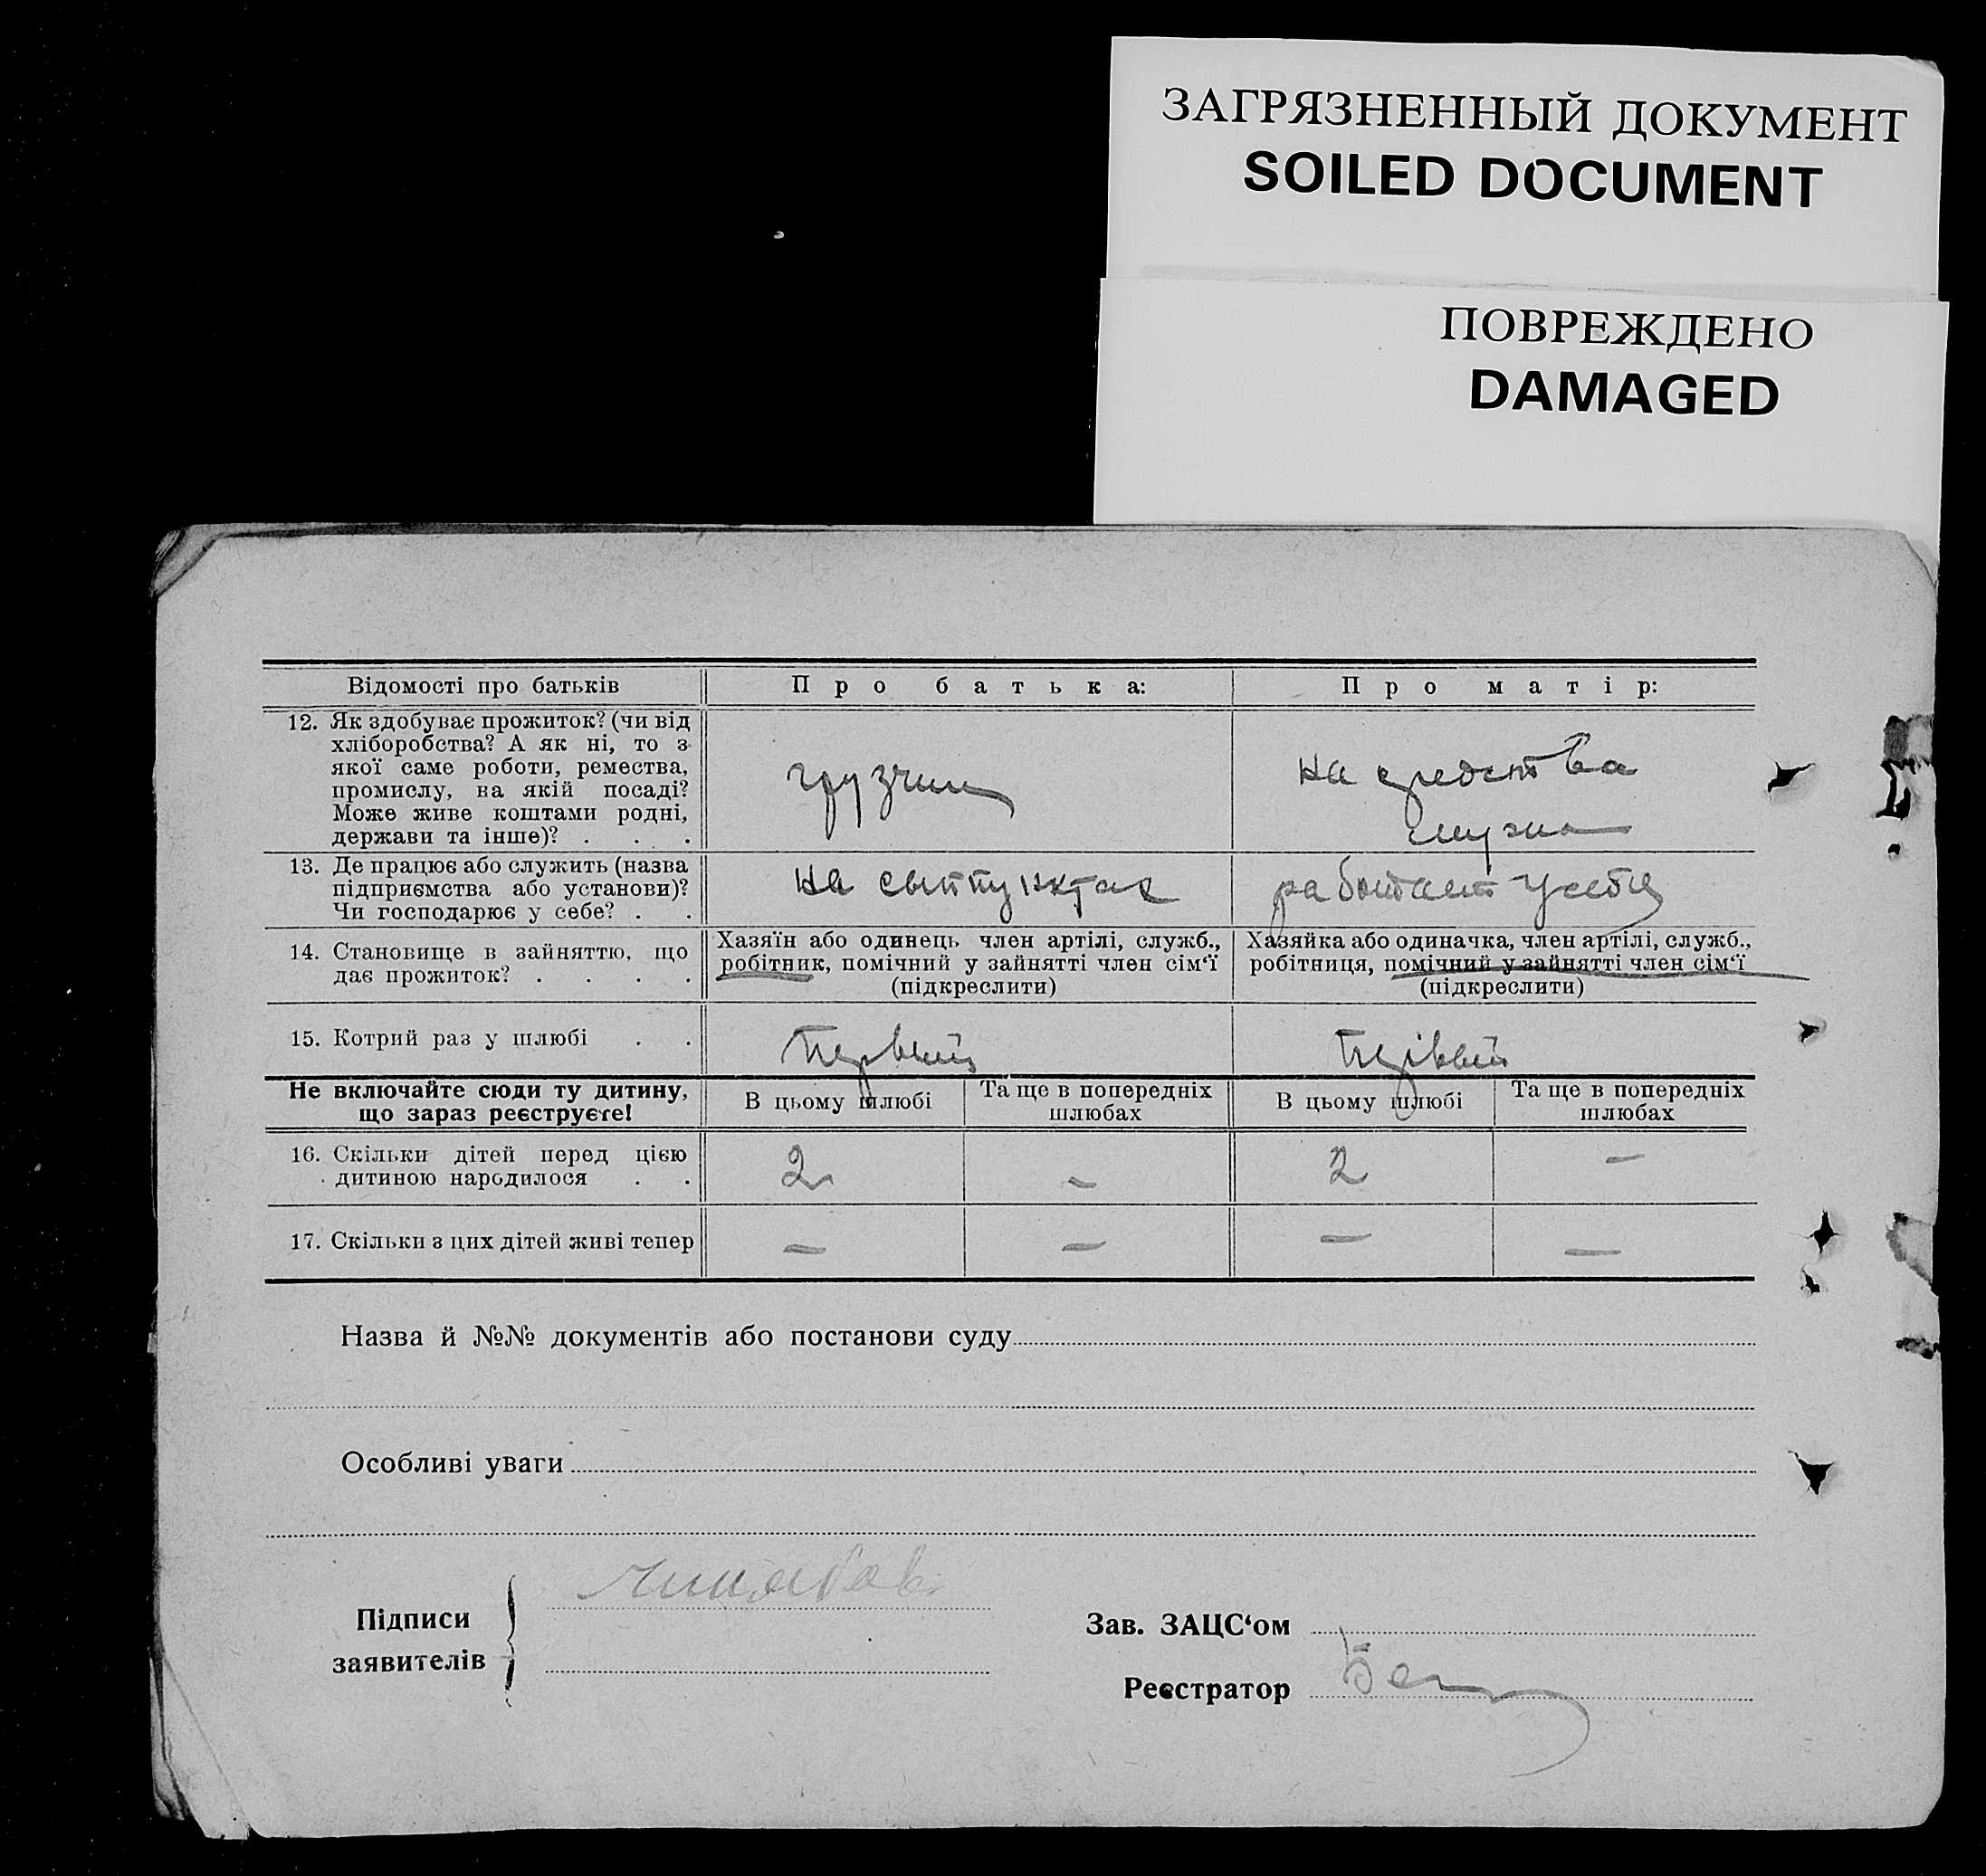 ЗАГРЯЗНЕННЫЙ ДОКУМЕНТ
SOILED DOCUMENT
ПОВРЕЖДЕНО
DAMAGED
Відомості про батьків
Про батька:
Про матір:
12. Як здобуває прожиток? (чи від
хліборобства? А як ні, то з
якої саме роботи, ремества,
промислу, на якій посаді?
Може живе коштами родні,
держави та інше)? . . .
грузчик
на средства
мужа
13. Де працює або служить (назва
підприємства або установи)?
Чи господарює у себе? . .
на сыппунктах
работает у себя
14. Становище в зайняттю, що
дає прожиток? . . . .
Хазяїн або одинець член артілі, служб.,
робітник, помічний у зайнятті член сім'ї
(підкреслити)
Хазяйка або одиначка, член артілі, служб.,
робітниця, помічний у зайнятті член сім'ї
(підкреслити)
15. Котрий раз у шлюбі . .
Первый
Первый
Не включайте сюди ту дитину,
що зараз реєструєте!
В цьому шлюбі
Та ще в попередніх
шлюбах
В цьому шлюбі
Та ще в попередніх
шлюбах
16. Скільки дітей перед цією
дитиною народилося . .
2
–
2
–
17. Скільки з цих дітей живі тепер
–
–
–
–
Назва й №№ документів або постанови суду
Особливі уваги
Підписи
заявителів
Зав. ЗАЦС'ом
Реєстратор